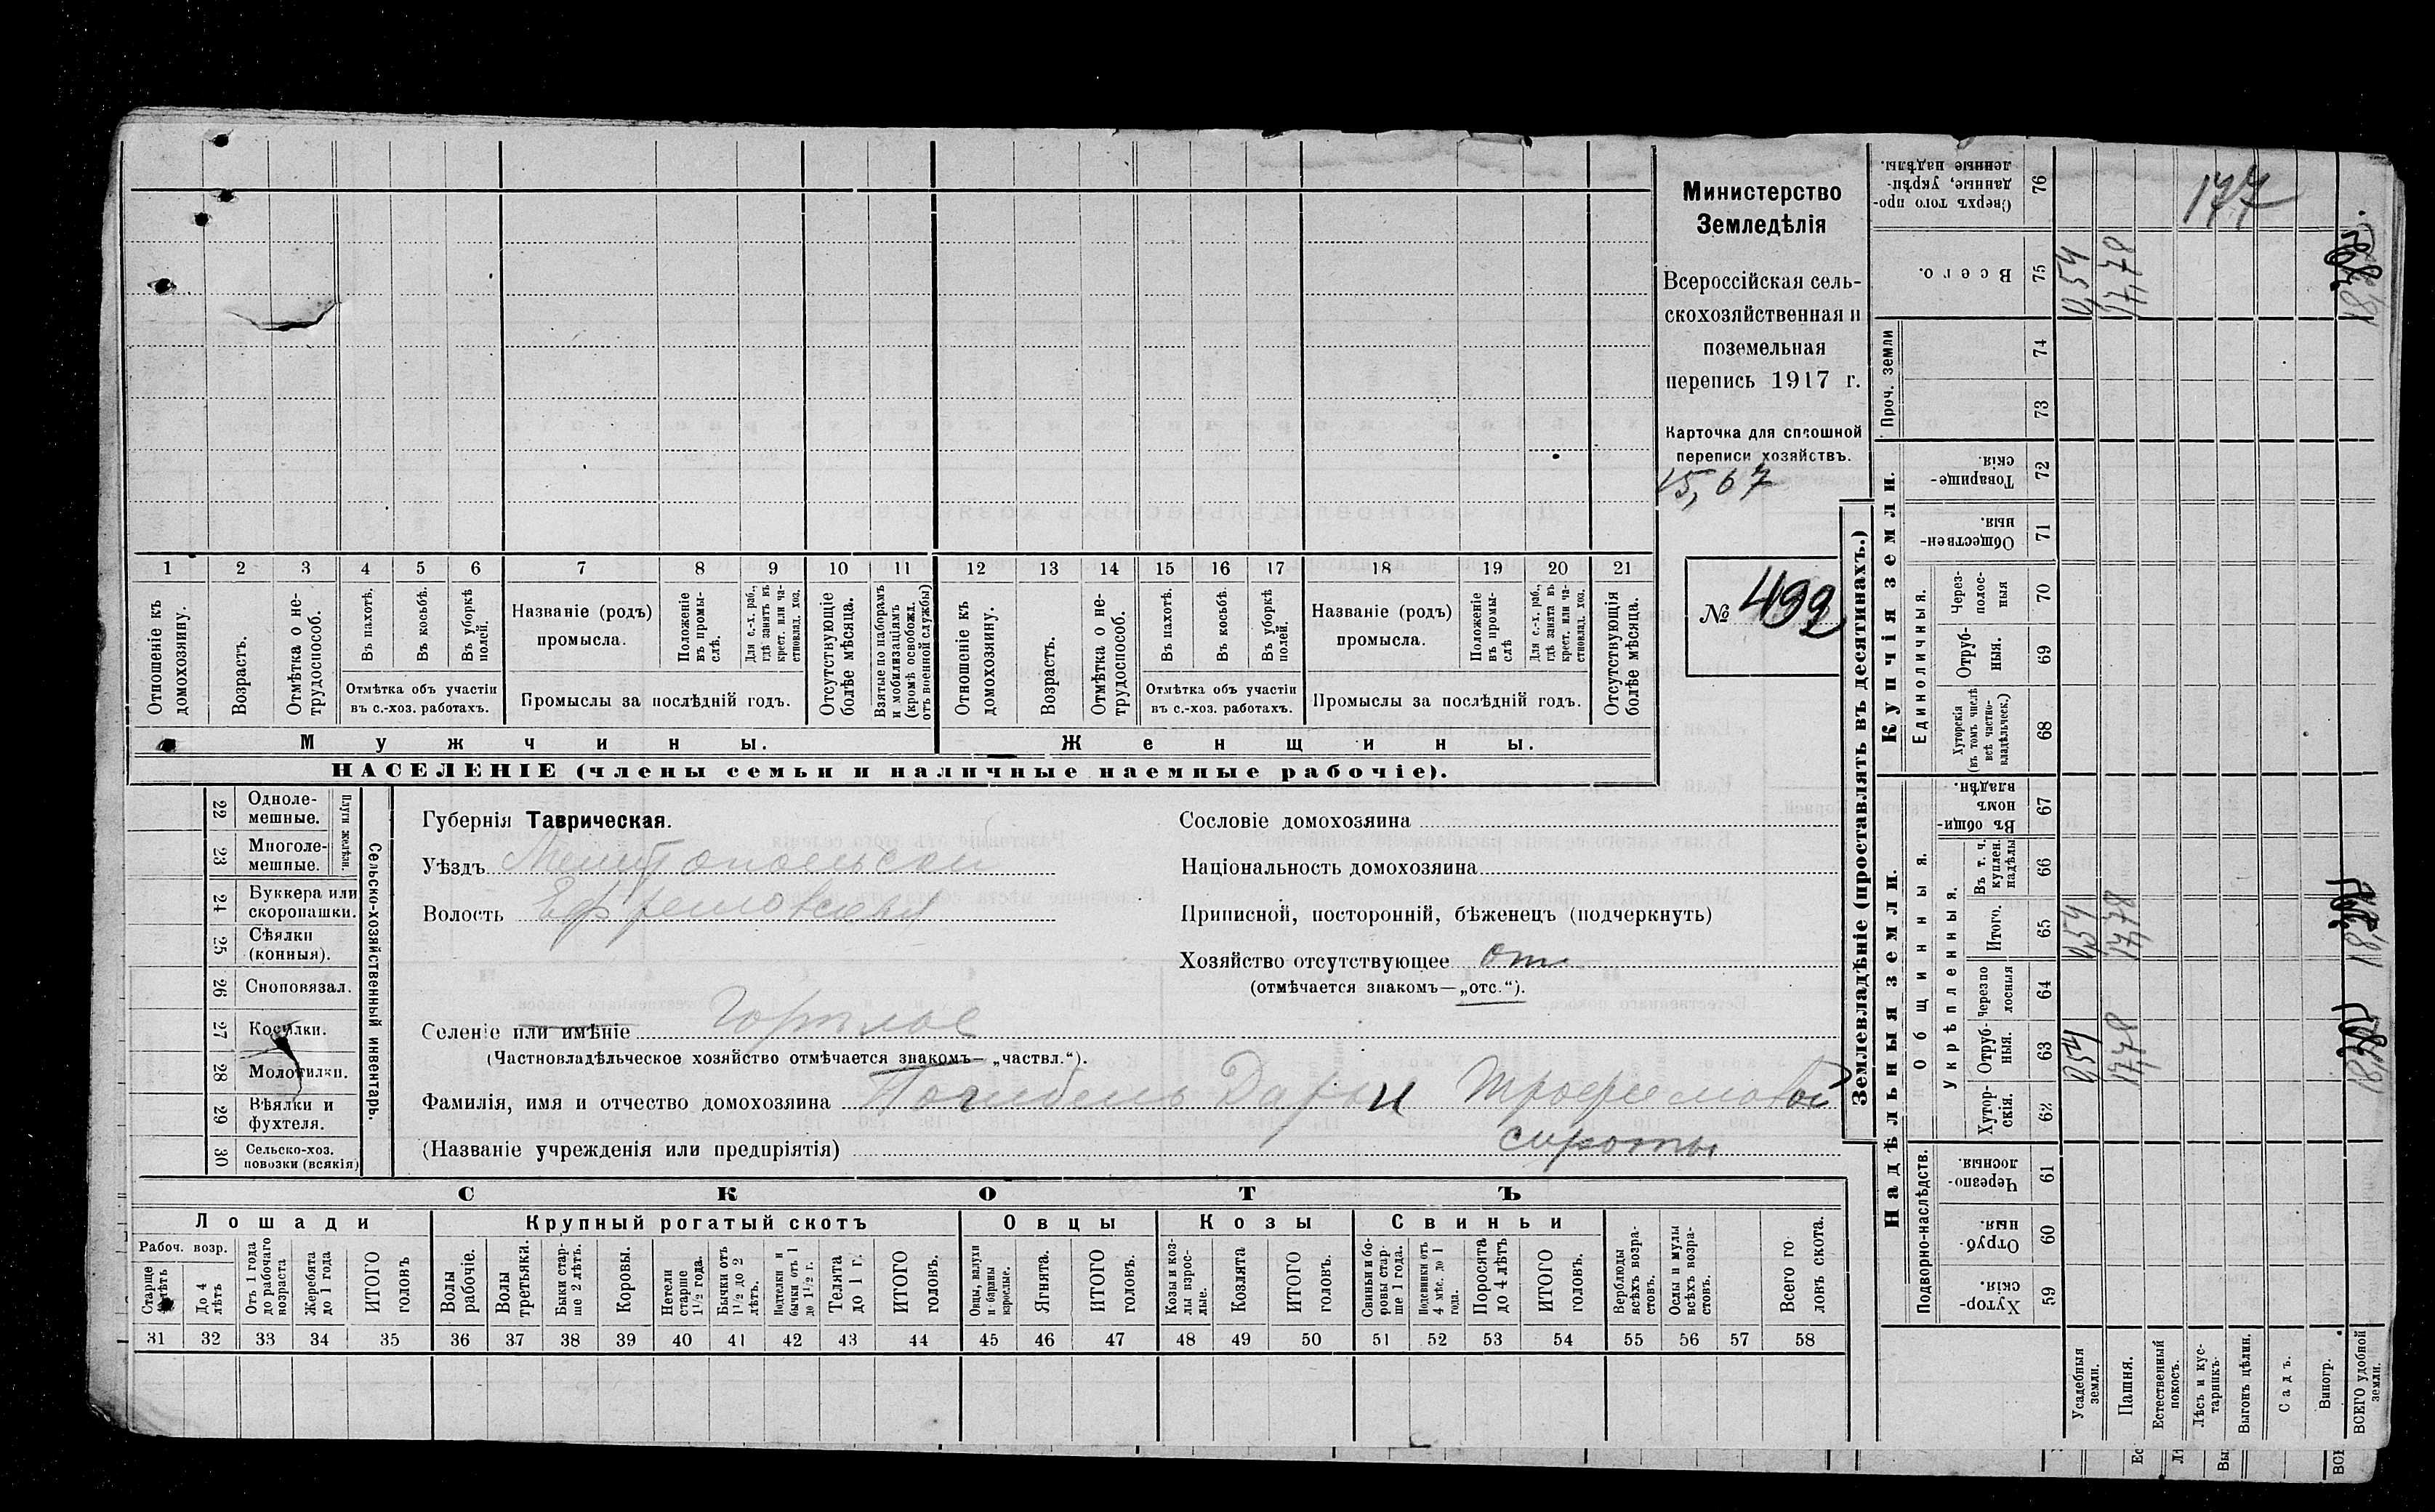 1 2 3 4 5 6 7 8 9 10 11 12 13 14 15 16 17 18 19 20 21
Отношеніе къ домохозяину.
Возрастъ.
Отмѣтка о не-трудоспособ.
Въ пахотѣ.
Въ косьбѣ.
Въ уборкѣ полей.
Отмѣтка объ участіи
въ с.-хоз. работахъ.
Названіе (родъ)
промысла.
Положеніе въ промы-слѣ.
Для с.-х. раб., гдѣ занятъ въ крест. или ча-стновлад. хоз.
Промыслы за послѣдній годъ.
Отсутствующіе болѣе мѣсяца.
Взятые по наборамъ и мобилизаціямъ (кромѣ освобожд. отъ военной службы)
Отношеніе къ домохозяину.
Возрастъ.
Отмѣтка о не-трудоспособ.
Въ пахотѣ.
Въ косьбѣ.
Въ уборкѣ полей.
Отмѣтка объ участіи
въ с.-хоз. работахъ.
Названіе (родъ)
промысла.
Положеніе въ промы-слѣ
Для с.-х. раб., гдѣ занята въ крест. или ча-стновлад. хоз.
Промыслы за послѣдній годъ.
Отсутствующія болѣе мѣсяца.
Мужчины.
Женщины.
НАСЕЛЕНІЕ (члены семьи и наличные наемные рабочіе).
Министерство
Земледѣлія
Всероссійская сель-
скохозяйственная и
поземельная
перепись 1917 г.
Карточка для сплошной
переписи хозяйствъ.
15,67
№ 499
22 Одноле-мешные.
23 Многоле-мешные.
Плуги желѣзн.
24 Буккера или скоропашки.
25 Сѣялки (конныя).
26 Сноповязал.
27 Косилки.
28 Молотилки.
29 Вѣялки и фухтеля.
30 Сельско-хоз. повозки (всякія)
Сельско-хозяйственный инвентарь.
Губернія Таврическая.
Уѣздъ Мелитопольскій
Волость Ефремовская
Селеніе или имѣніе Горѣлое
(Частновладѣльческое хозяйство отмѣчается знакомъ— „частвл.“).
Фамилія, имя и отчество домохозяина Погибель Дарьи Трофимовой
(Названіе учрежденія или предпріятія) сироты
Сословіе домохозяина
Національность домохозяина
Приписной, посторонній, бѣженецъ (подчеркнуть)
Хозяйство отсутствующее отс.
(отмѣчается знакомъ—„отс.“).
СКОТЪ
Лошади
Крупный рогатый скотъ
Овцы
Козы
Свиньи
Рабоч. возр.
Старше 4 лѣтъ
До 4 лѣтъ
Отъ 1 года до рабочаго возраста
Жеребята до 1 года
ИТОГО головъ
Волы рабочіе.
Волы третьяки.
Быки стар-ше 2 лѣтъ.
Коровы.
Нетели старше 1½ года.
Бычки отъ 1½ до 2 лѣтъ.
Подтелки и бычки отъ 1 до 1½ г.
Телята до 1 г.
ИТОГО головъ.
Овцы, валухи и бараны взрослые.
Ягнята.
ИТОГО головъ.
Козы и коз-лы взрос-лые.
Козлята
ИТОГО головъ.
Свиньи и бо-ровы стар-ше 1 года.
Подсвинки отъ 4 мѣс. до 1 года.
Поросята до 4 лѣтъ
ИТОГО головъ.
Верблюды всѣхъ возра-стовъ.
Ослы и мулы всѣхъ возра-стовъ.
Всего го-ловъ скота.
31 32 33 34 35 36 37 38 39 40 41 42 43 44 45 46 47 48 49 50 51 52 53 54 55 56 57 58
Землевладѣніе (проставлять въ десятинахъ.)
Надѣльныя земли.
Подворно-наслѣдств.
Хутор-скія. 59
Отруб-ныя. 60
Черезпо-лосныя. 61
Общинныя.
Укрѣпленныя.
Хутор-скія. 62
Отруб-ныя. 63 0,54 17,78 18,32
Черезпо лосныя 64
Итого. 65 0,54 17,78 18,32
Въ т. ч. куплен. надѣлы 66
Въ общин-номъ владѣн. 67
Купчія земли.
Единоличныя.
Хуторскія (въ томъ числѣ всѣ частно-владѣльческ.) 68
Отруб-ныя. 69
Через-полос-ныя 70
Обществен-ныя. 71
Товарище-скія. 72
Проч. земли
73
74
Всего. 75 0,54 17,78 18,32
Сверхъ того про-данные, укрѣп-ленные надѣлы. 76
177
Усадебныя земли.
Пашня.
Естественный покосъ.
Лѣсъ и кус-тарникъ.
Выгонъ цѣлин.
Садъ.
Виногр.
ВСЕГО удобной земли.